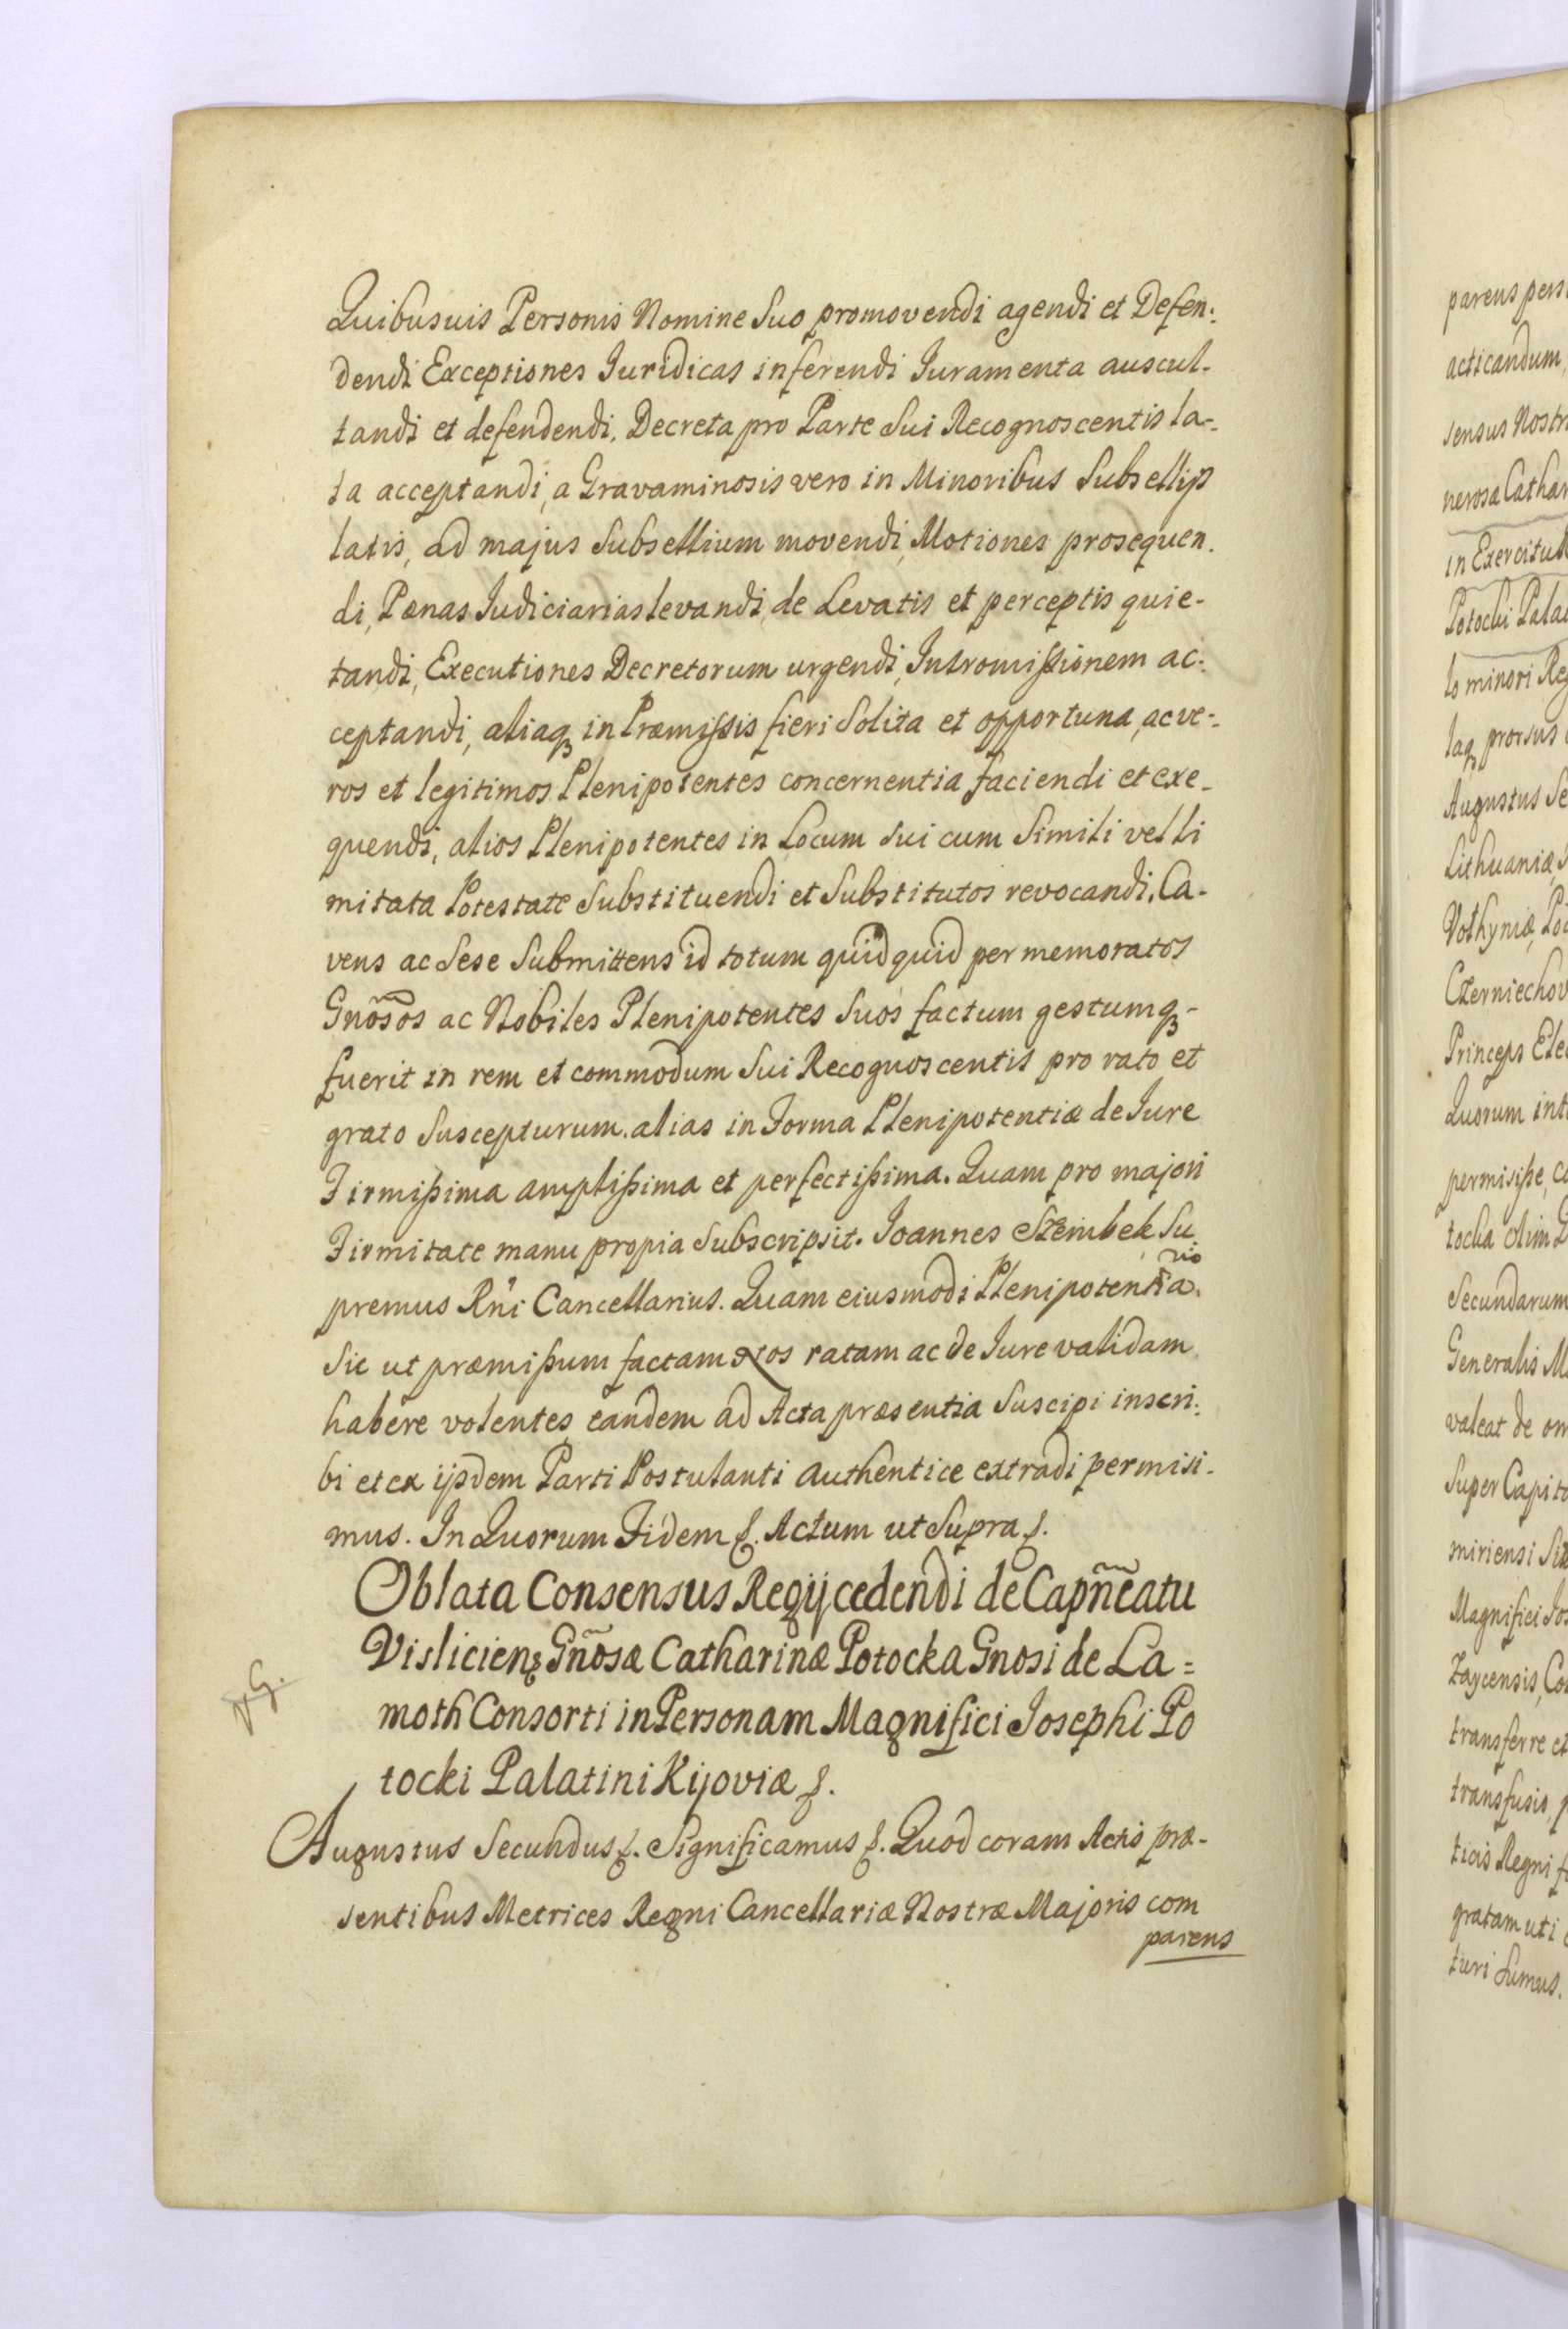 Quibusuis Personis Nomine Suo promovendi agendi et Defen-
dendi Exceptiones Iuridicas inferendi Iuramenta auscul-
tandi et defendendi, Decreta pro Parte Sui Recognoscentis la-
ta acceptandi, a Gravaminosis vero in Minoribus Subsellijs
latis, ad majus Subsellium movendi, Motiones prosequen.
di, Pœnas Iudiciarias levandi, de Levatis et perceptis quie-
tandi, Executiones Decretorum urgendi, Intromißionem ac-
ceptandi, aliaqꝫ in Præmissis fieri Solita et opportuna, ac ve-
ros et legitimos Plenipotentes concernentia faciendi et exe-
quendi, alios Plenipotentes in Locum sui cum Simili vel li
mitata Potestate Substituendi et Substitutos revocandi. Ca-
vens ac Sese Submittens id totum quidquid per memoratos
Gnõsos ac Nobiles Plenipotentes Suos factum gestumqꝫ-
fuerit in rem et commodum Sui Recognoscentis pro rato et
grato Suscepturum. alias in Forma Plenipotentiæ de Iure
Firmißima amplißima et perfectißima. Quam pro majori
Firmitate manu propia Subscripsit. Joannes Szembek Su.
premus Rñi Cancellarius. Quam eiusmodi Plenipotentia.
Sic ut præmißum factam ratam ac de Iure validam
habere volentes, eandem ad Acta præsentia Suscipi inscri-
bi et ex ijsdem Parti Postulanti authentice extradi permisi-
mus. In Quorum Fidem ʃ. Actum ut Supra ʃ.
Oblata Consensus Regij cedendi de Capñeatu
Visliciens Gñosæ Catharinæ Potocka Gnosi de La=
moth Consorti in Personam Magnifici Josephi Po
tocki Palatini Kijoviæ ʃ.
Augustus Secundus ʃ. Significamus ʃ. Quod coram Actis præ-
sentibus Metrices Regni Cancellariæ Nostræ Majoris com
parens
parens pers
acticandum
sensus Nostri
nerosæ Cathar
in Exercitu
Potocki Pala
lo minori Reg
laqꝫ prorsus
Augustus Se
Lithuaniæ
Volhyniæ, Po
Czerniechov
Princeps Ele
Quorum int
permisiße, co
tocka olim
Secundarum
Generalis Ma
valeat de om
Super Capit
miriensi Sit
Magnifici Jos
transferre et
transfusis
ticis Regni f
gratam uti
turi Sumus.